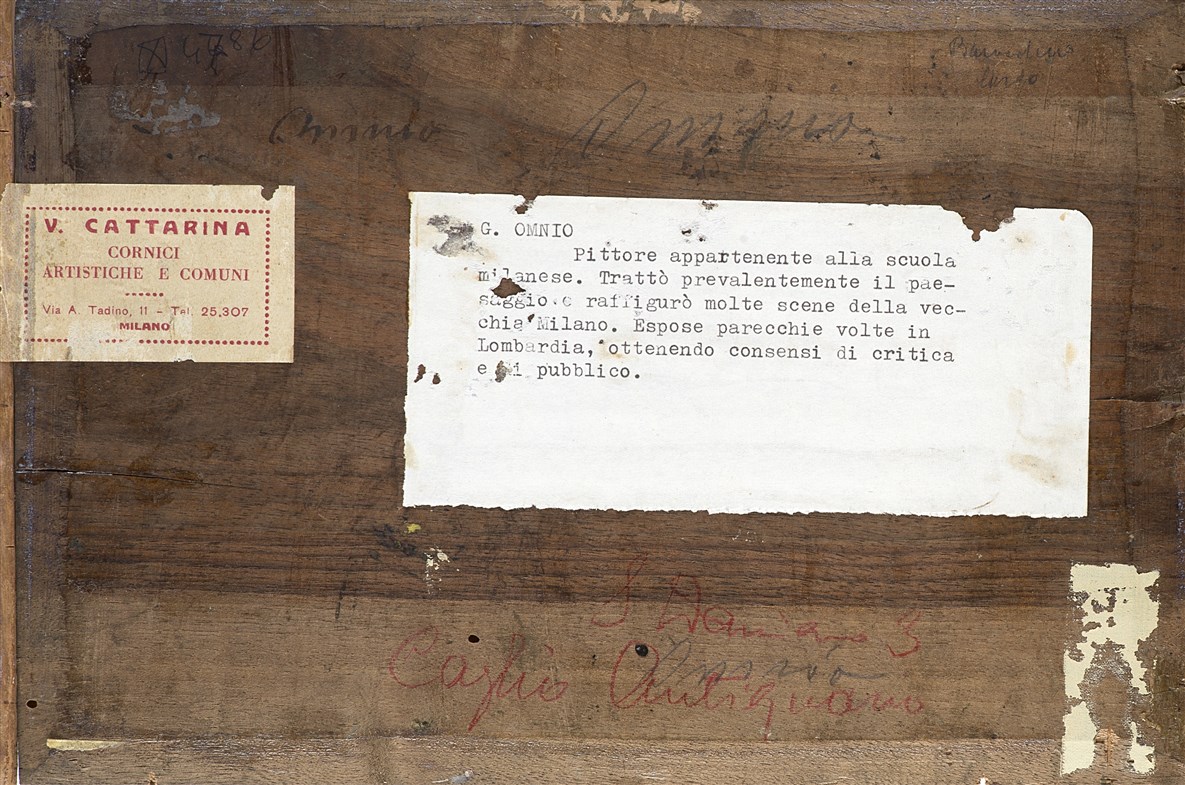 Omnio
V. CATTARINA
CORNICI
ARTISTICHE E COMUNI
Via A. Tadino, 11 - Tel. 25.307
MILANO
G. OMNIO
Pittore appartenente alla scuola
milanese. Trattò prevalentemente il pae-
saggio e raffigurò molte scene della vec-
chia Milano. Espose parecchie volte in
Lombardia, ottenendo consensi di critica
e di pubblico.
S Damiano 3
Antiquario